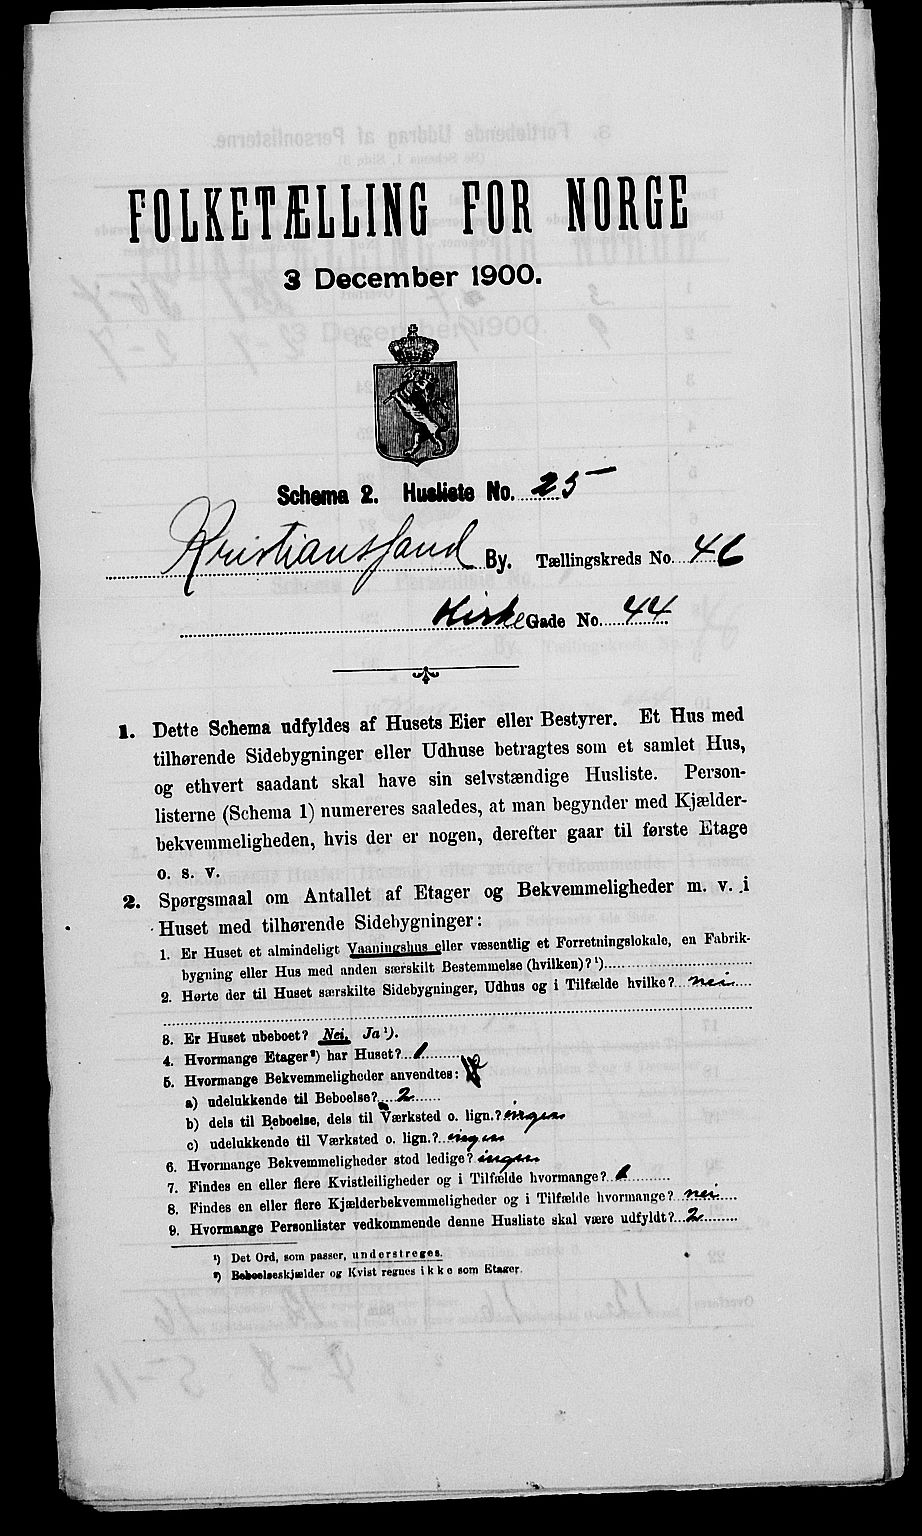 FOLKETÆLLING FOR NORGE
3 December 1900.
Schema 2. Husliste No. 25
Kristianssand By. Tællingskreds No. 46
Kirke Gade No. 44
1. Dette Schema udfyldes af Husets Eier eller Bestyrer. Et Hus med
tilhørende Sidebygninger eller Udhuse betragtes som et samlet Hus,
og ethvert saadant skal have sin selvstændige Husliste. Person-
listerne (Schema 1) numereres saaledes, at man begynder med Kjælder-
bekvemmeligheden, hvis der er nogen, derefter gaar til første Etage
o. s. v.
2. Spørgsmaal om Antallet af Etager og Bekvemmeligheder m. v. i
Huset med tilhørende Sidebygninger:
1. Er Huset et almindeligt Vaaningshus eller væsentlig et Forretningslokale, en Fabrik-
bygning eller Hus med anden særskilt Bestemmelse (hvilken)? ¹)
2. Hørte der til Huset særskilte Sidebygninger, Udhus og i Tilfælde hvilke? nei
3. Er Huset ubeboet? Nei. Ja ¹).
4. Hvormange Etager ²) har Huset? 1
5. Hvormange Bekvemmeligheder anvendtes:
a) udelukkende til Beboelse? 2
b) dels til Beboelse, dels til Værksted o. lign.? ingen
c) udelukkende til Værksted o. lign.? ingen
6. Hvormange Bekvemmeligheder stod ledige? ingen
7. Findes en eller flere Kvistleiligheder og i Tilfælde hvormange? 1
8. Findes en eller flere Kjælderbekvemmeligheder og i Tilfælde hvormange? nei
9. Hvormange Personlister vedkommende denne Husliste skal være udfyldt? 2
¹) Det Ord, som passer, understreges.
²) Beboelseskjælder og Kvist regnes ikke som Etager.